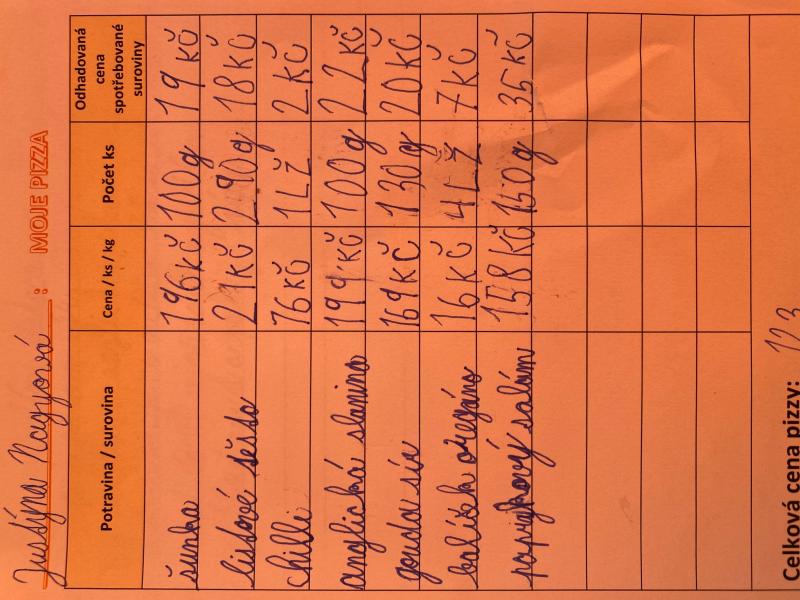 Justýna Nagyová : MOJE PIZZA
Potravina / surovina Cena / ks / kg Počet ks Odhadovaná cena spotřebované suroviny
šunka 196Kč 100g 19 Kč
listové těsto 21Kč 290g 18Kč
chilli 16Kč 1LŽ 2Kč
anglická slanina 199Kč 100g 22Kč
gouda sír 169Kč 130g 20Kč
balíček oregáno 16Kč 4LŽ 7Kč
paprykový salám 158Kč 150g 35Kč
Celková cena pizzy: 123